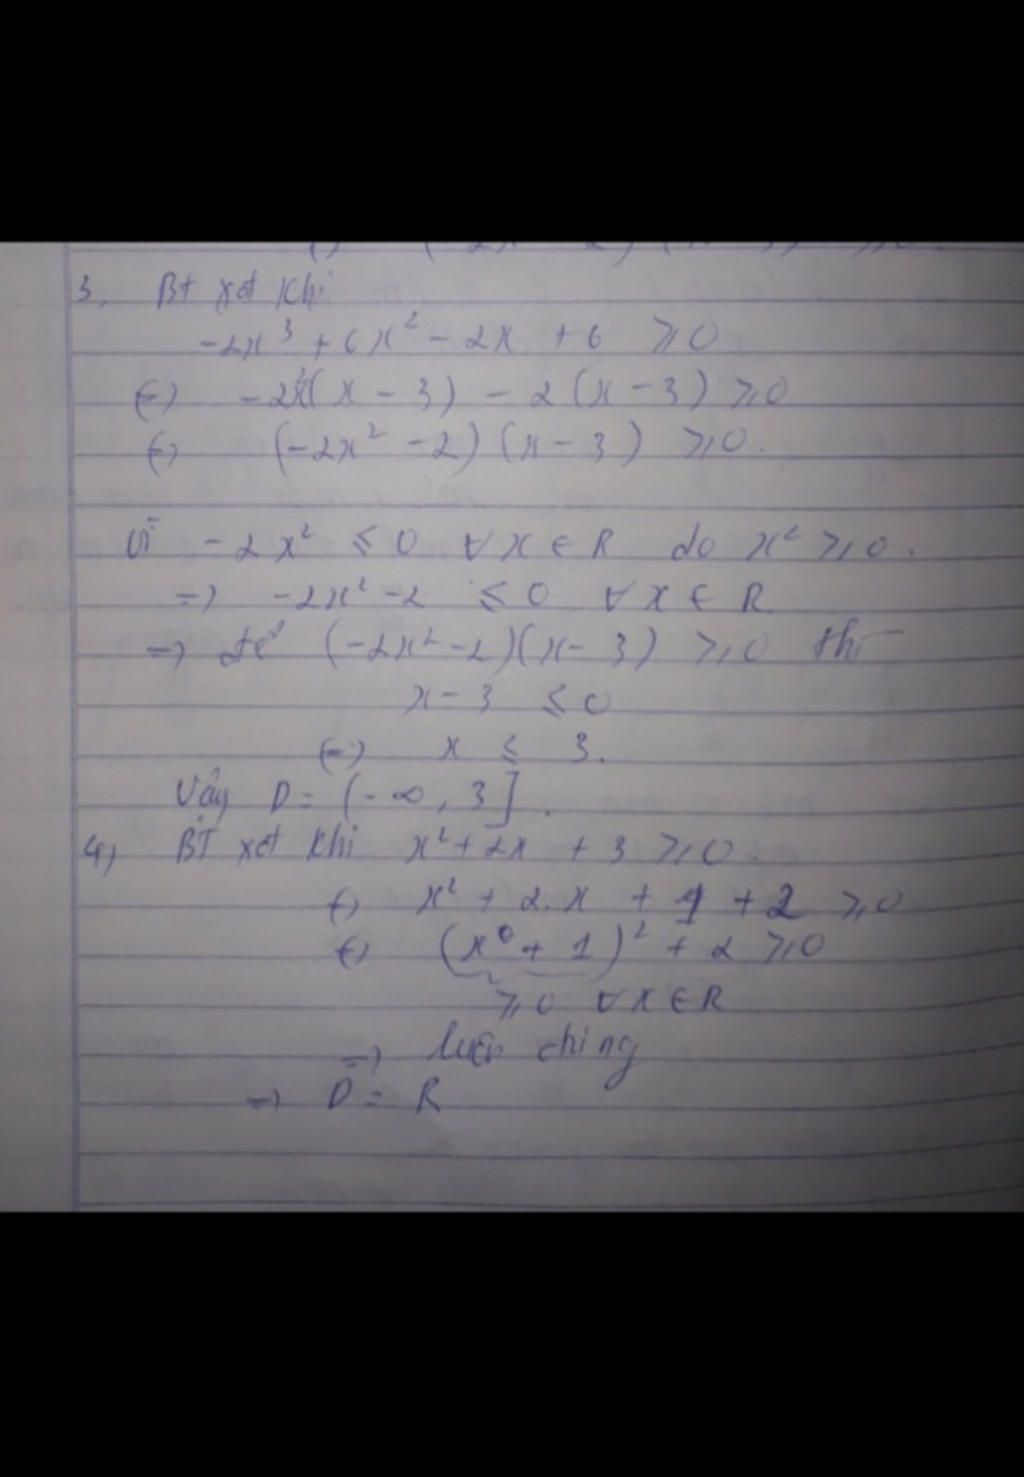 3, Bt xđ khi
-2x³ + 6x² - 2x + 6 ≥ 0
(=) -2x²(x - 3) - 2(x - 3) ≥ 0
(=) (-2x² - 2)(x - 3) ≥ 0.
Vì -2x² ≤ 0 ∀x ∈ R do x² ≥ 0.
=) -2x² - 2 ≤ 0 ∀x ∈ R
=) để (-2x² - 2)(x - 3) ≥ 0 thì
x - 3 ≤ 0
(=) x ≤ 3.
Vậy D = (-∞, 3].
4, BT xđ khi x² + 2x + 3 ≥ 0.
(=) x² + 2.x + 1 + 2 ≥ 0
(=) (x + 1)² + 2 ≥ 0
≥ 0 ∀x ∈ R
=) luôn
=) D = R